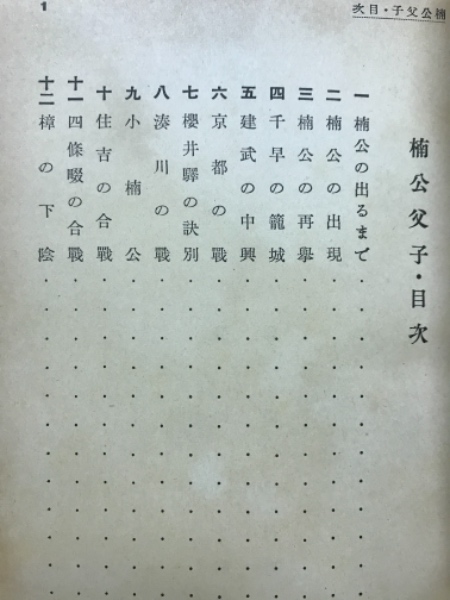 楠公父子・目次
1
楠公父子・目次
一 楠公の出るまで
二 楠公の出現
三 楠公の再擧
四 千早の籠城
五 建武の中興
六 京都の戰
七 櫻井驛の訣別
八 湊川の戰
九 小楠公
十 住吉の合戰
十一 四條畷の合戰
十二 樟の下陰